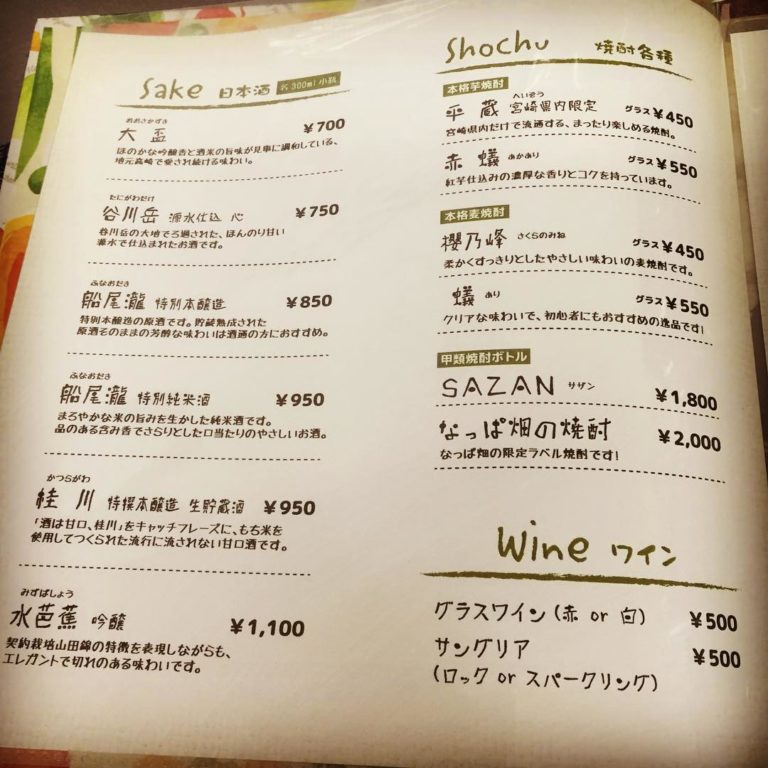 Sake 日本酒 各300ml小瓶
おおさかずき
大盃 ¥700
ほのかな吟醸香と酒米の旨味が見事に調和している、
地元高崎で愛され続ける味わい。
たにがわだけ
谷川岳 源水仕込 心 ¥750
谷川岳の大地でろ過された、ほんのり甘い
源水で仕込まれたお酒です。
ふなおだき
船尾瀧 特別本醸造 ¥850
特別本醸造の原酒です。貯蔵熟成された
原酒そのままの芳醇な味わいは酒通の方におすすめ。
ふなおだき
船尾瀧 特別純米酒 ¥950
まろやかな米の旨みを生かした純米酒です。
品のある含み香でさらりとした口当たりのやさしいお酒。
かつらがわ
桂川 特撰本醸造 生貯蔵酒 ¥950
「酒は甘口、桂川」をキャッチフレーズに、もち米を
使用してつくられた流行に流されない甘口酒です。
みずばしょう
水芭蕉 吟醸 ¥1,100
契約栽培山田錦の特徴を表現しながらも、
エレガントで切れのある味わいです。
Shochu 焼酎各種
本格芋焼酎
へいぞう
平蔵 宮崎県内限定 グラス¥450
宮崎県内だけで流通する、まったり楽しめる焼酎。
赤蟻 あかあり グラス¥550
紅芋仕込みの濃厚な香りとコクを持っています。
本格麦焼酎
櫻乃峰 さくらのみね グラス¥450
柔かくすっきりとしたやさしい味わいの麦焼酎です。
蟻 あり グラス¥550
クリアな味わいで、初心者にもおすすめの逸品です!
甲類焼酎ボトル
SAZAN サザン ¥1,800
なっぱ畑の焼酎 ¥2,000
なっぱ畑の限定ラベル焼酎です!
Wine ワイン
グラスワイン(赤 or 白) ¥500
サングリア ¥500
(ロック or スパークリング)